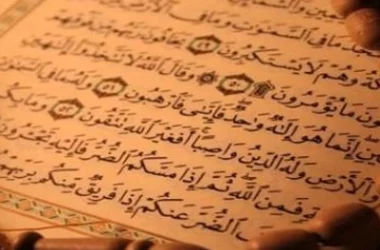 يَسْجُدُ مَا فِي ٱلسَّمَٰوَٰتِ وَمَا فِي
وَهُمْ لَا يَسْتَكْبِرُونَ ٤٩ يَخَافُونَ رَبَّهُم مِّن فَوْقِهِمْ
مَا يُؤْمَرُونَ ۩ ٥٠ ۞ وَقَالَ ٱللَّهُ لَا تَتَّخِذُوٓا۟ إِلَٰهَيْنِ
إِنَّمَا هُوَ إِلَٰهٌ وَٰحِدٌ فَإِيَّٰيَ فَٱرْهَبُونِ ٥١ وَلَهُۥ مَا فِي ٱلسَّمَٰوَٰتِ
وَٱلْأَرْضِ وَلَهُ ٱلدِّينُ وَاصِبًا أَفَغَيْرَ ٱللَّهِ تَتَّقُونَ ٥٢ وَمَا بِكُم
فَمِنَ ٱللَّهِ ثُمَّ إِذَا مَسَّكُمُ ٱلضُّرُّ فَإِلَيْهِ تَجْـَٔرُونَ
ٱلضُّرَّ عَنكُمْ إِذَا فَرِيقٌ مِّنكُم بِرَبِّهِمْ